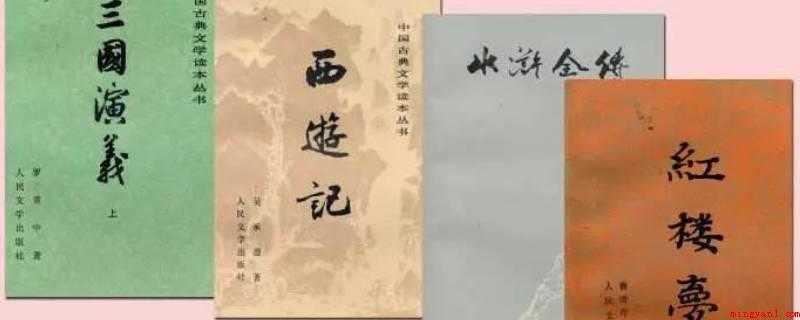 三國演義
上
罗贯中著
人民文学出版社
中国古典文学读本丛书
西遊記
吴承恩著
人民文学出版社
中国古典文学读本丛书
水滸全傳
紅楼夢
人民文
mingyan1.com